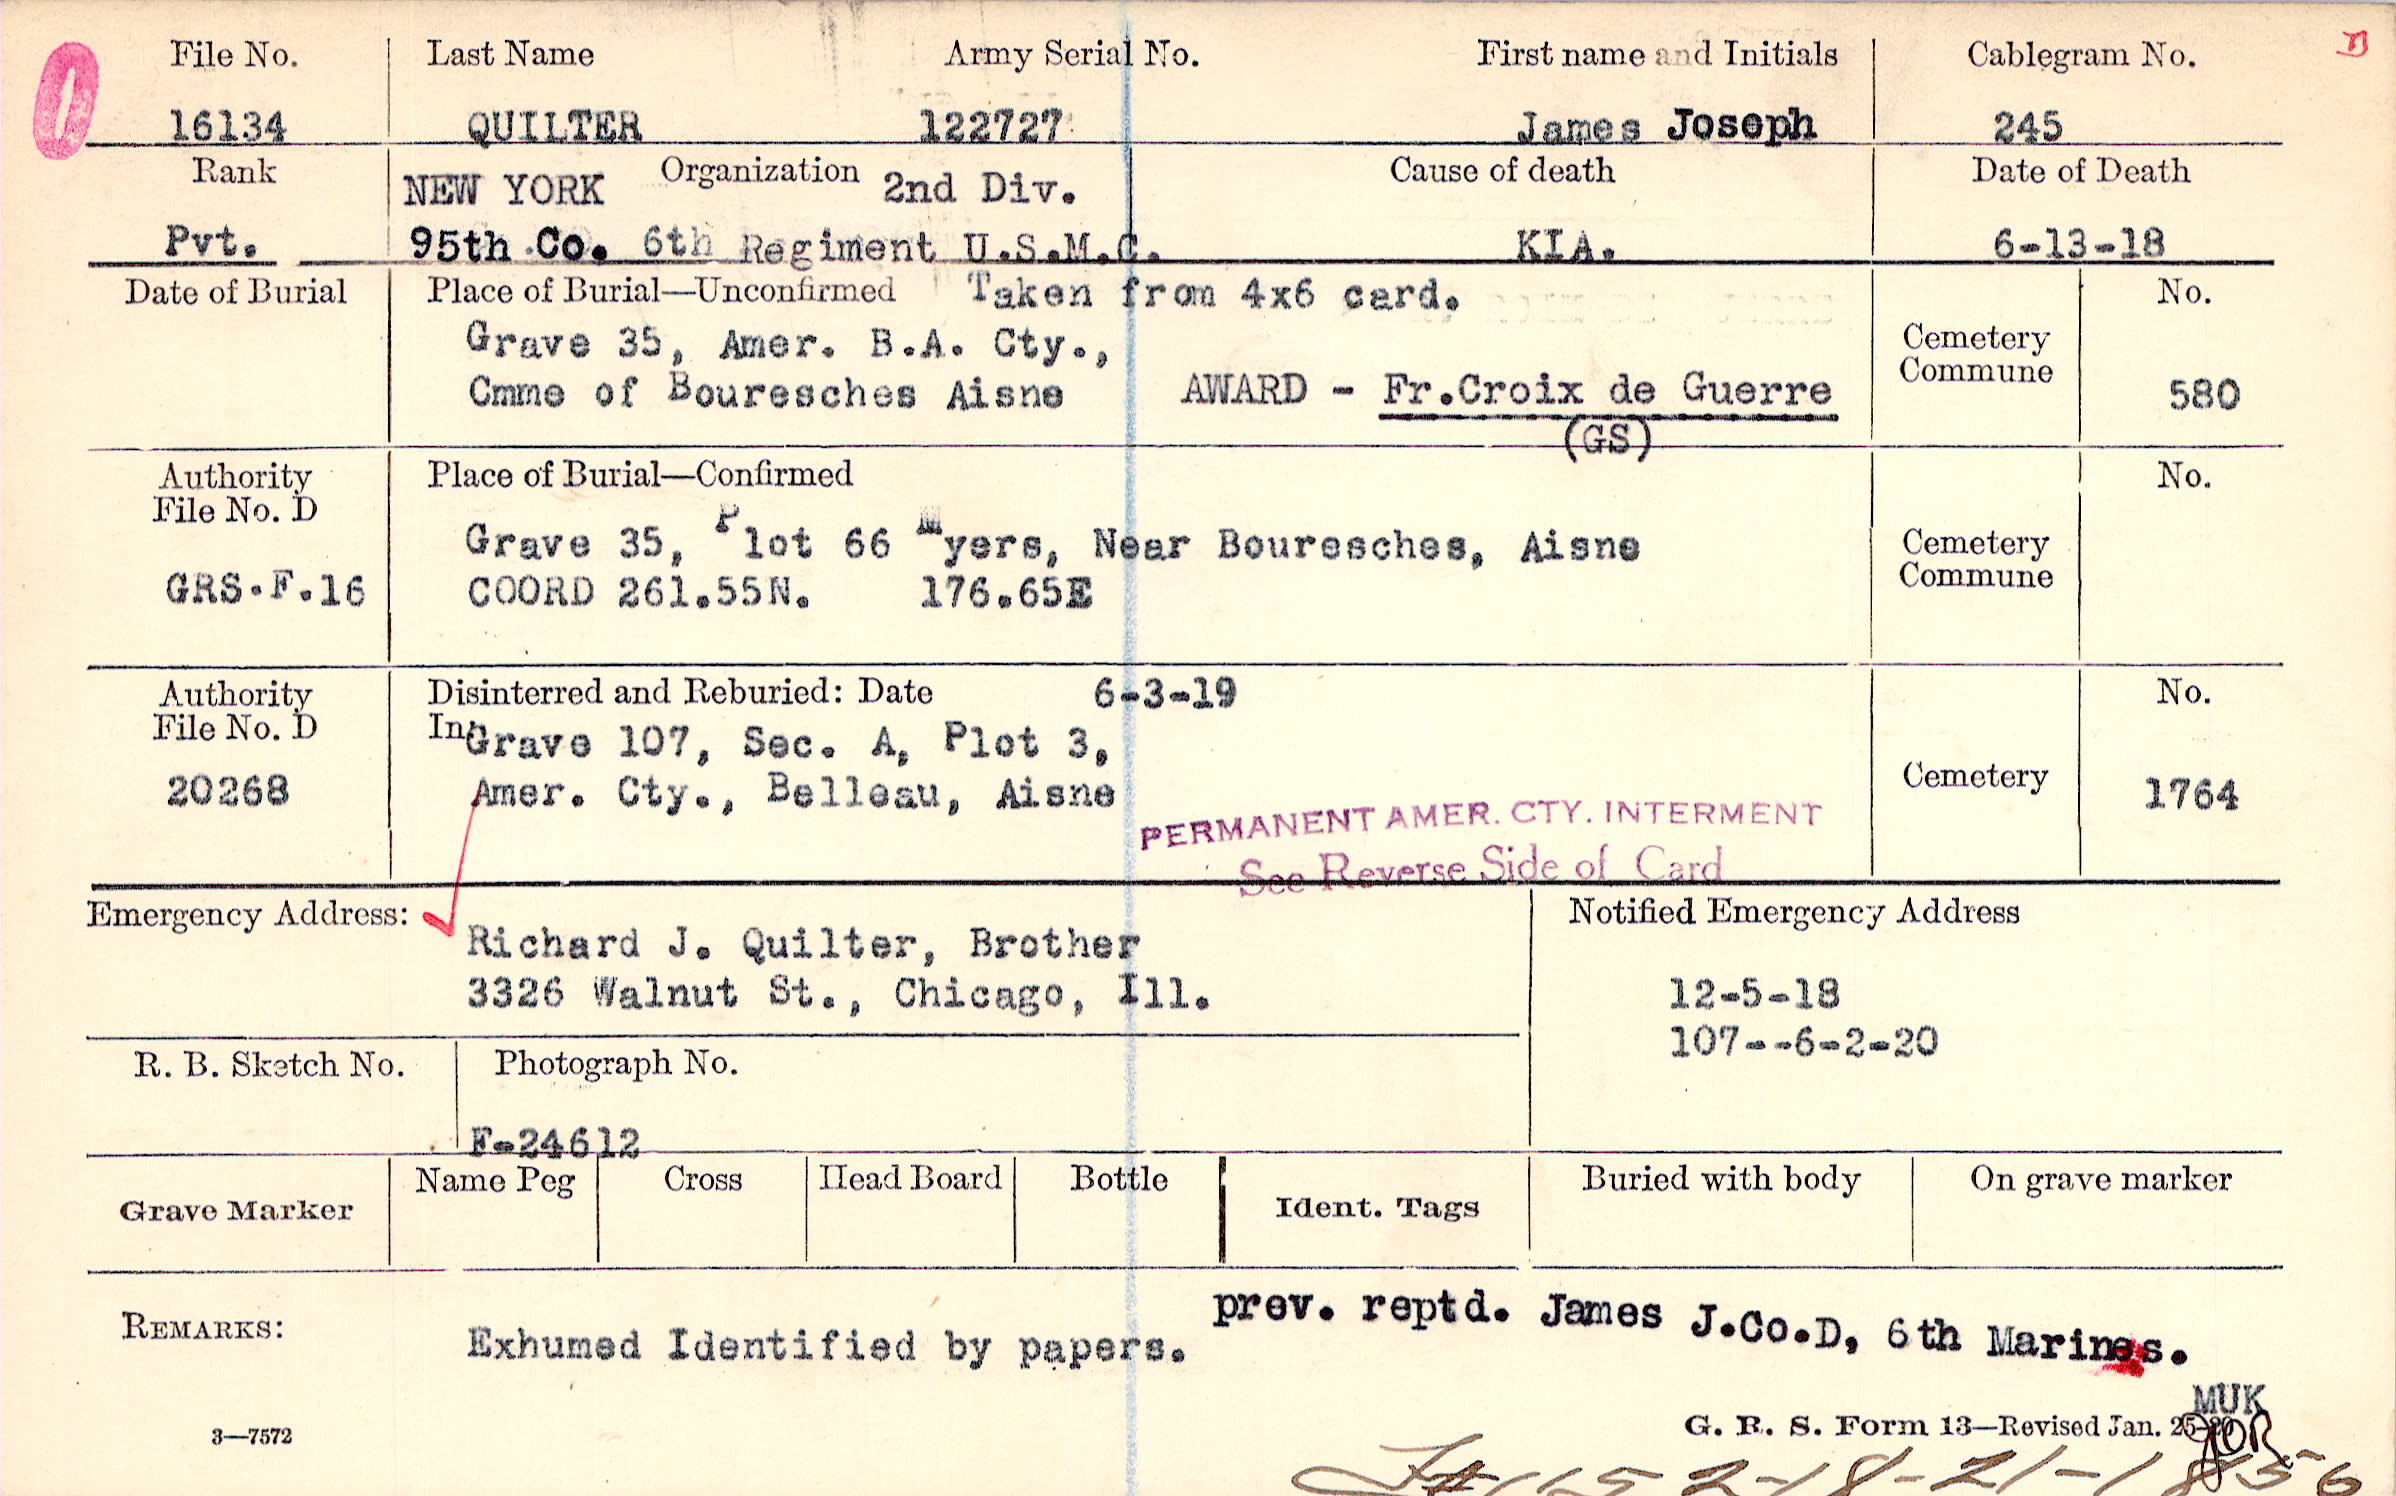 File No. Last Name Army Serial No. First name and Initials Cablegram No.
16134 QUILTER 122727 James Joseph 245
Rank Organization Cause of death Date of Death
NEW YORK 2nd Div.
Pvt. 95th Co. 6th Regiment U.S.M.C. KIA. 6-13-18
Date of Burial Place of Burial—Unconfirmed Taken from 4x6 card. No.
Grave 35, Amer. B.A. Cty., Cemetery
Cmme of Bouresches Aisne AWARD - Fr.Croix de Guerre Commune 580
(GS)
Authority Place of Burial—Confirmed No.
File No. D
Grave 35, Plot 66 Myers, Near Bouresches, Aisne Cemetery
GRS.F.16 COORD 261.55N. 176.65E Commune
Authority Disinterred and Reburied: Date 6-3-19 No.
File No. D In Grave 107, Sec. A, Plot 3,
20268 Amer. Cty., Belleau, Aisne Cemetery 1764
PERMANENT AMER. CTY. INTERMENT
See Reverse Side of Card
Emergency Address: Notified Emergency Address
Richard J. Quilter, Brother
3326 Walnut St., Chicago, Ill. 12-5-18
107--6-2-20
R. B. Sketch No. Photograph No.
F-24612
Grave Marker Name Peg Cross Head Board Bottle Ident. Tags Buried with body On grave marker
REMARKS: Exhumed Identified by papers. prev. reptd. James J.Co.D, 6th Marines.
MUK
3—7572 G. R. S. Form 13—Revised Jan. 25-20